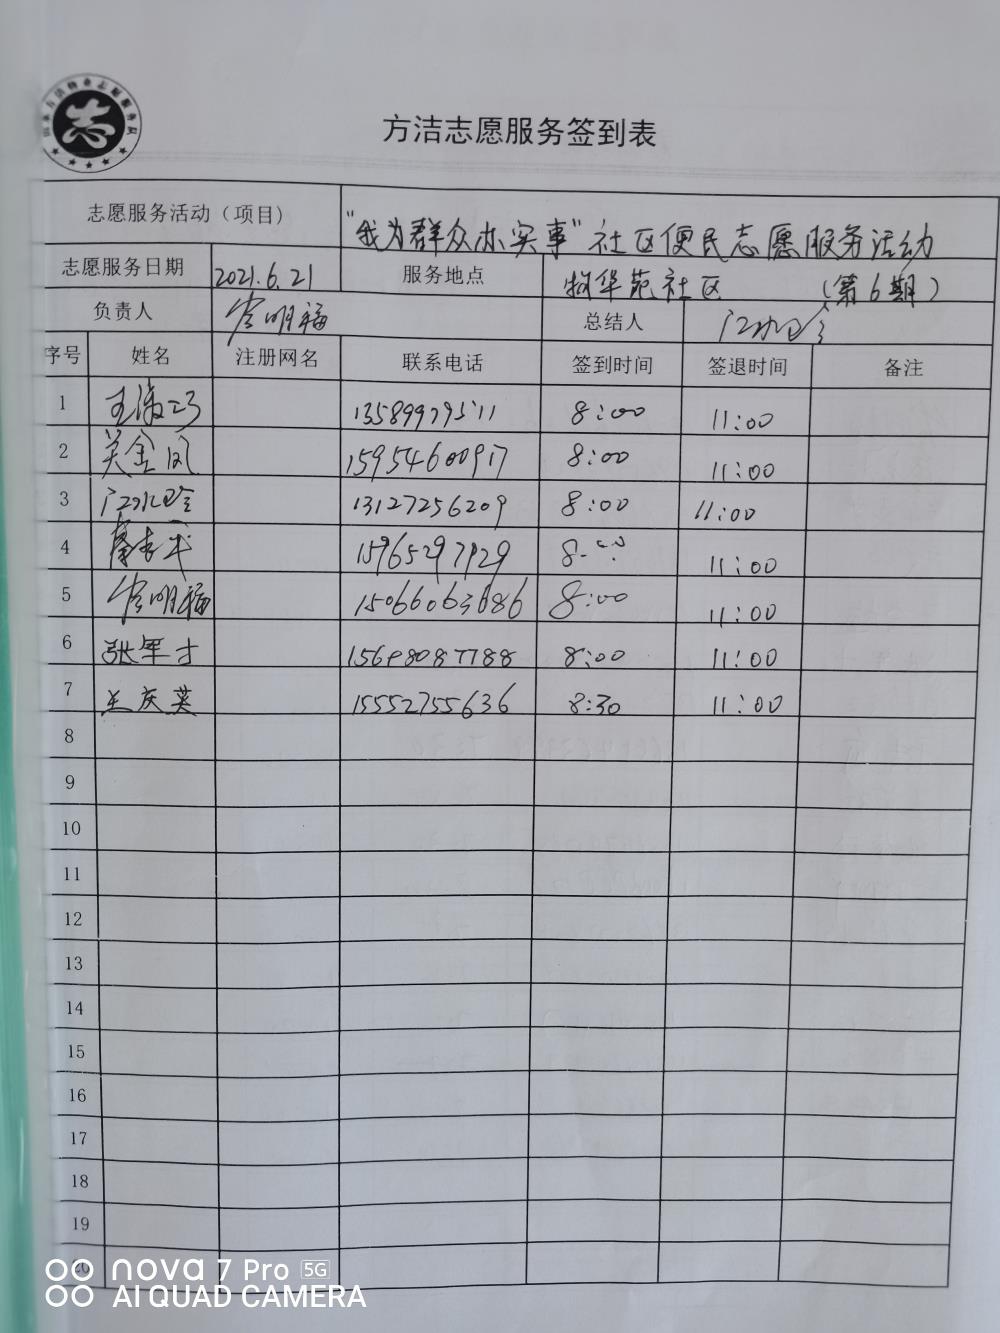 志
方洁志愿服务签到表
志愿服务活动（项目） “我为群众办实事”社区便民志愿服务活动
志愿服务日期 2021.6.21 服务地点 物华苑社区 （第6期）
负责人 总结人
序号 姓名 注册网名 联系电话 签到时间 签退时间 备注
1 8:00 11:00
2 关金凤 15954600917 8:00 11:00
3 13127256209 8:00 11:00
4 15965297929 11:00
5 8:00 11:00
6 张军才 8:00 11:00
7 王庆英 15552755636 8:30 11:00
8
9
10
11
12
13
14
15
16
17
18
19
20
nova 7 Pro 5G
AI QUAD CAMERA